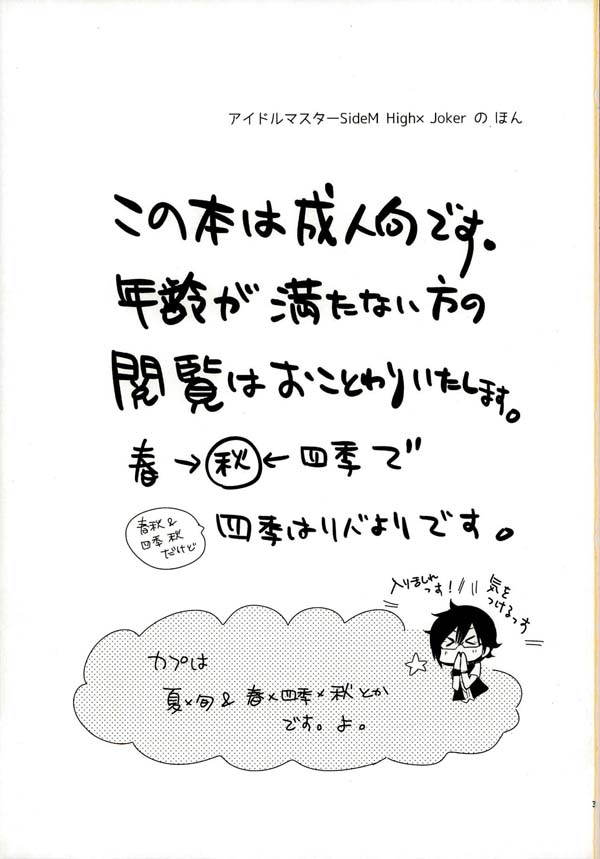 アイドルマスターSideM High× Joker の ほん
この本は成人向です。
年齢が満たない方の
閲覧はおことわりいたします。
春→秋←四季で
春秋&
四季秋
だけど
四季はリバよりです。
入り乱れ
っす!
気を
つけるっす
カプは
夏×旬& 春×四季×秋とか
です。よ。